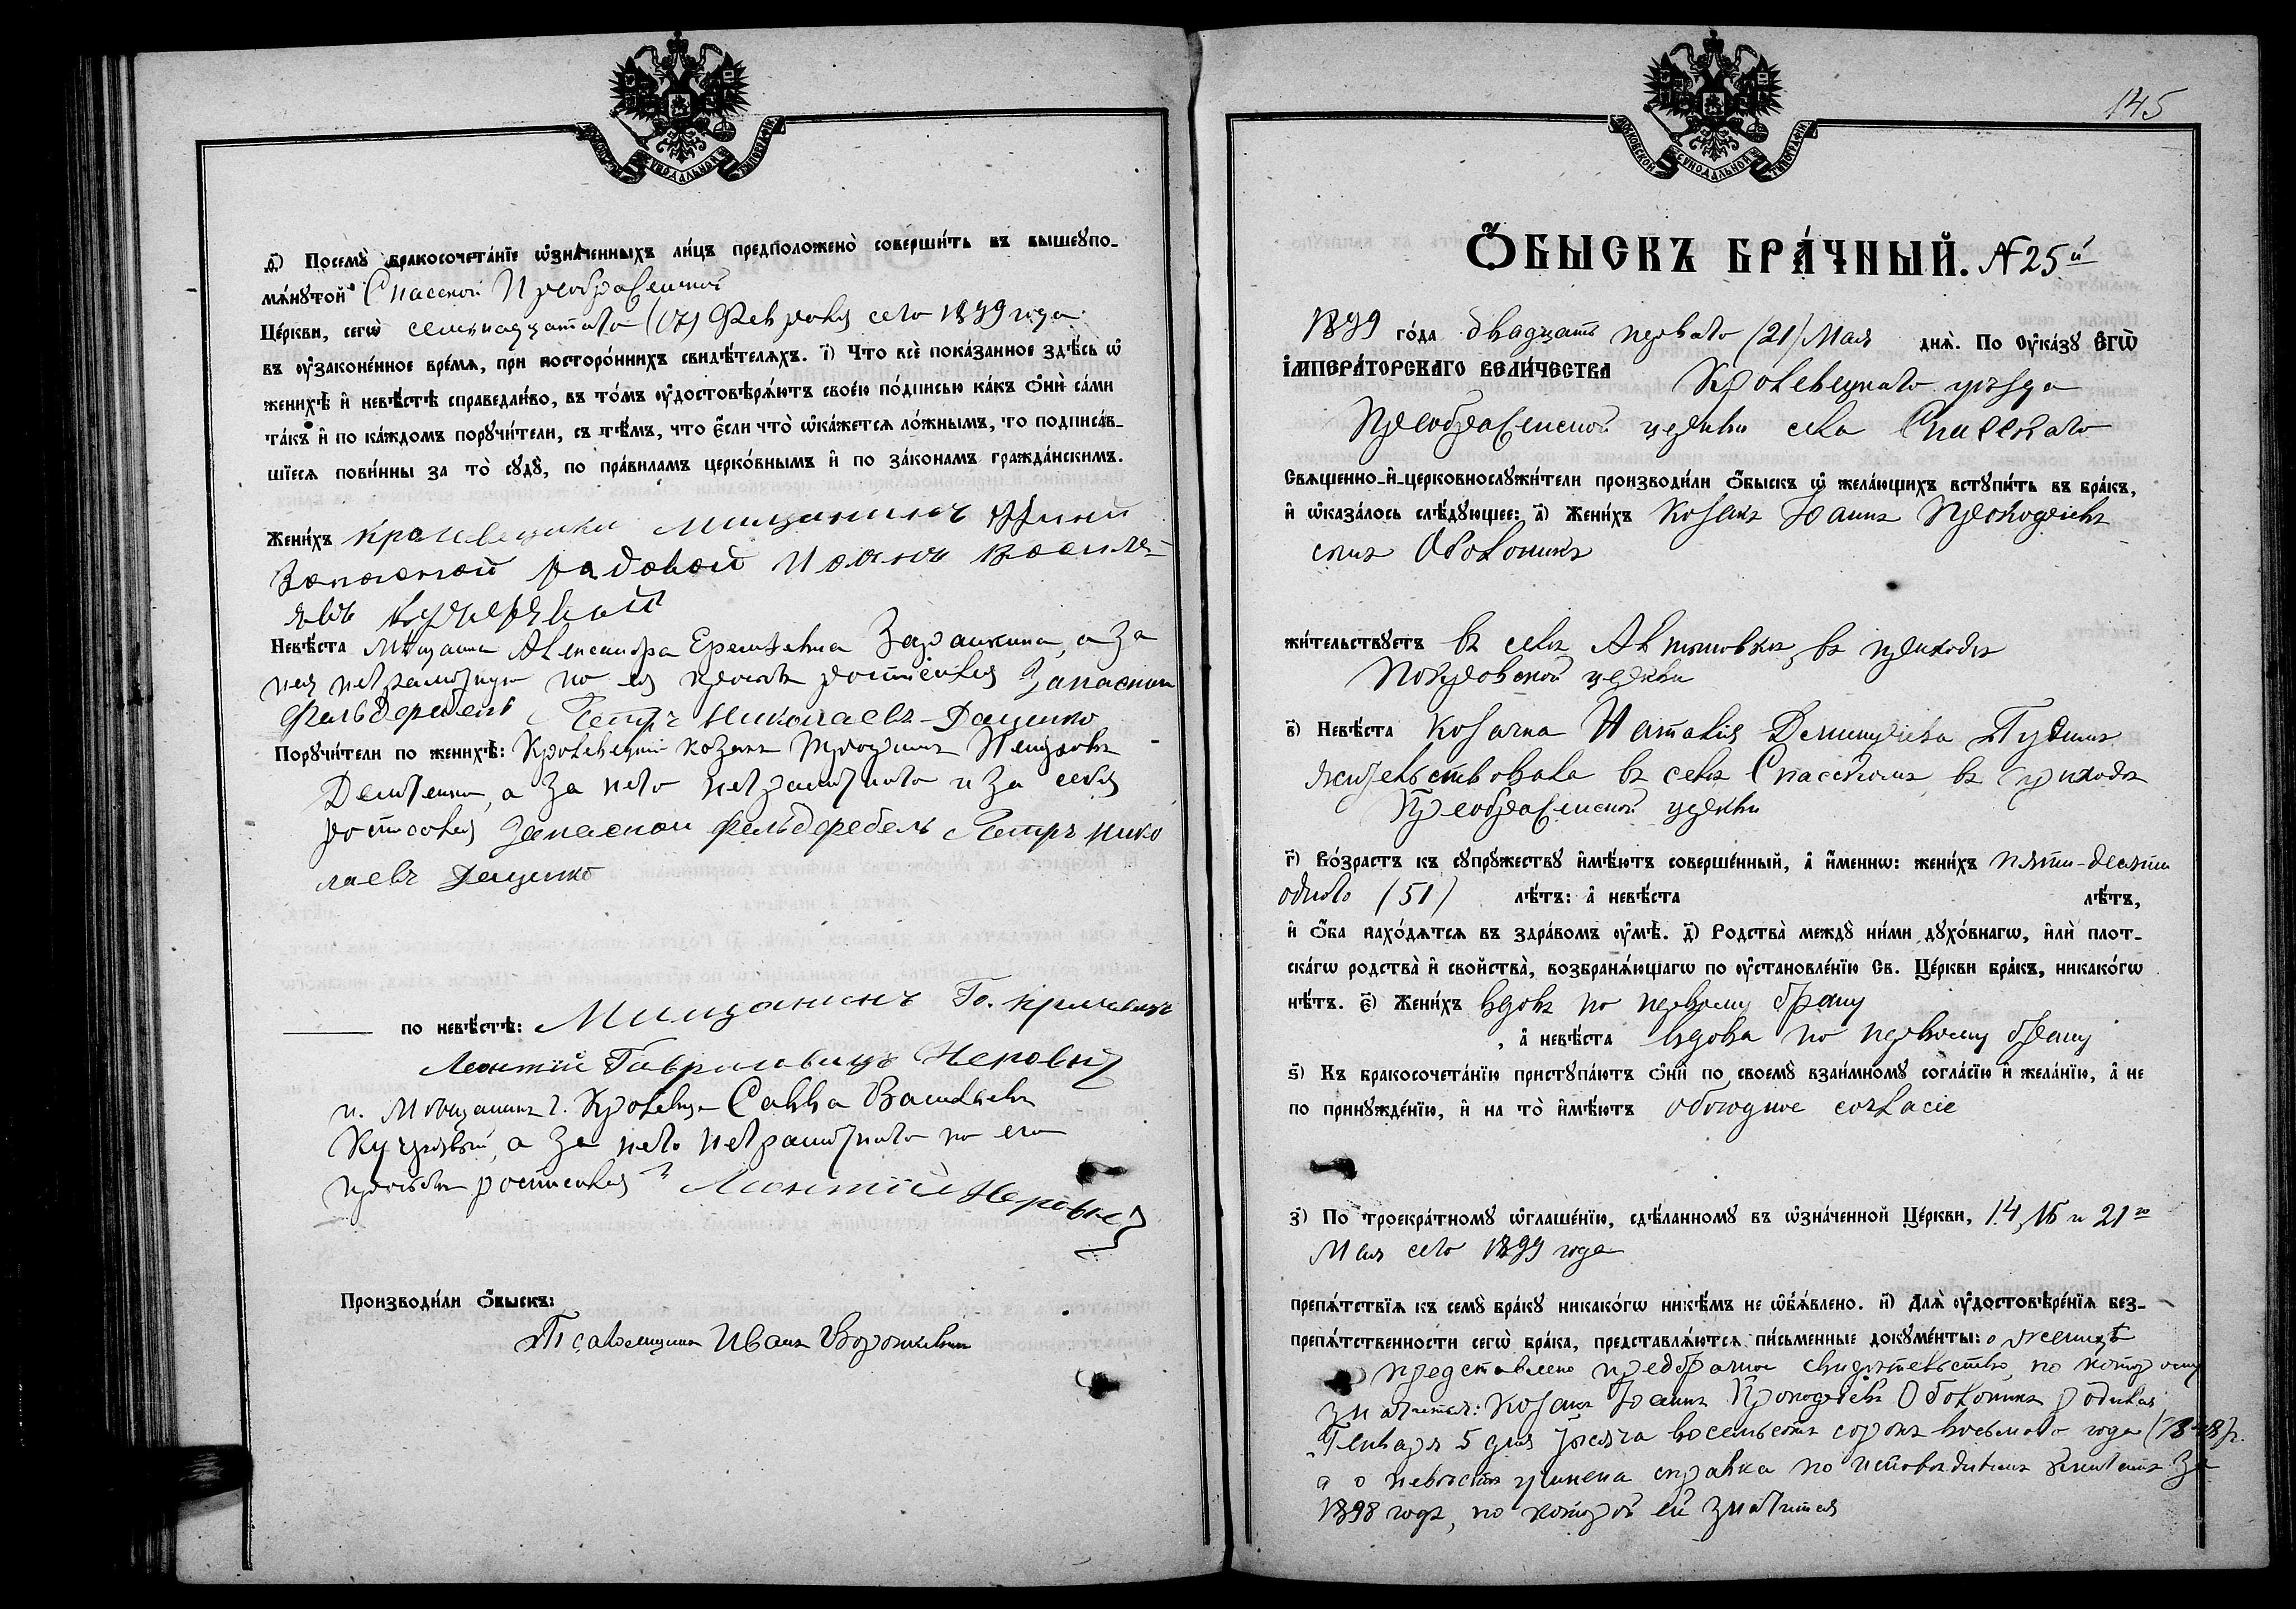 МОСКОВСКОЙ СѴНОДАЛЬНОЙ ТИПОГРАФІИ
ѳ҃) Посемꙋ̀ бракосочета́нїе ѡ҆зна́ченныхъ ли́цъ предположено̀ соверши́ть въ вышеꙋпо-
мѧ́нꙋтой Спасской Преображенской
Це́ркви, сегѡ̀ семнадцатого (17) Февраля сего 1899 года
въ ᲂу҆законе́нное вре́мѧ, при посторо́ннихъ свидѣ́телѧхъ. і҃) Что всѐ пока́занное здѣ́сь ѡ҆
женихѣ̀ и҆ невѣ́стѣ справедли́во, въ то́мъ ᲂу҆достовѣрѧ́ютъ свое́ю по́дписью ка́къ ѻ҆нѝ са́ми
та́къ и҆ по ка́ждомъ порꙋчи́тели, съ тѣ́мъ, что є҆́сли что̀ ѡ҆ка́жетсѧ ло́жнымъ, то подписа́в-
шїесѧ пови́нны за то̀ сꙋдꙋ̀, по пра́виламъ церко́внымъ и҆ по зако́намъ гражда́нскимъ.
Жени́хъ мищанинъ
Запасной рядовой Иоанъ Василе-
Невѣ́ста Мѣщанка Александра Еремѣевна а за
нея неграмотную по ея просьбѣ росписался Запасной
фельдфебель Петръ Николаевъ-Даценко
Порꙋчи́тели по женихѣ̀: Кролевецкій козакъ Трофимъ
а за него неграмотного и за себя
росписался Запасной фельдфебель Петръ Нико
лаевъ Даценко
по невѣ́стѣ: Мищанинъ Го. Кролевца
Леонтій Гавриловичъ Неровный
и Мѣщанинъ г. Кролевца Савва Васильевъ
а за него неграмотного по его
просьбѣ росписался Леонтій
Производи́ли ѻ҆́быскъ:
Псаломщикъ Иванъ
145
МОСКОВСКОЙ СѴНОДАЛЬНОЙ ТИПОГРАФІИ
Ѻ҆́БЫСКЪ БРА́ЧНЫЙ. № 25й
1899 го́да двадцать перваго (21) Мая днѧ̀. По ᲂу҆ка́зꙋ Є҆ГѠ̀
І҆МПЕРА́ТОРСКАГѠ ВЕЛИ́ЧЕСТВА Кролевецкаго уѣзда
Преображенской церкви села Спасскаго
Свѧщенно-и҆-церковнослꙋжи́тели производи́ли ѻ҆́быскъ ѡ҆ жела́ющихъ встꙋпи́ть въ бра́къ,
и҆ ѡ҆каза́лось слѣ́дꙋющее: а҃) Жени́хъ Козакъ Іоаннъ Прокофіевъ
сынъ Оболоникъ
жи́тельствꙋетъ въ селѣ въ приходѣ
Покровской церкви
в҃) Невѣ́ста Козачка Наталія
жительствовала въ селѣ Спасскомъ въ приходѣ
Преображенской церкви
г҃) Во́зрастъ къ сꙋпрꙋ́жествꙋ и҆мѣ́ютъ соверше́нный, а҆ и҆́меннѡ: жени́хъ пяти-десяти
одного (51) лѣ́тъ: а҆ невѣ́ста лѣ́тъ,
и҆ ѻ҆́ба нахо́дѧтсѧ въ здра́вомъ ᲂу҆мѣ̀. д҃) Родства̀ междꙋ̀ ни́ми дꙋхо́внагѡ, и҆лѝ плот-
ска́гѡ родства̀ и҆ сво́йства̀, возбранѧ́ющагѡ по ᲂу҆становле́нїю Св. Це́ркви бра́къ, никако́гѡ
нѣ́тъ. є҃) Жени́хъ вдовъ по первому браку
, а҆ невѣ́ста вдова по первому браку
ѕ҃) Къ бракосочета́нїю пристꙋпа́ютъ ѻ҆нѝ по своемꙋ̀ взаи́мномꙋ согла́сїю и҆ жела́нїю, а҆ не
по принꙋжде́нїю, и҆ на то̀ и҆мѣ́ютъ обоюдное согласіе
з҃) По троекра́тномꙋ ѡ҆глаше́нїю, сдѣ́ланномꙋ въ ѡ҆зна́ченной Це́ркви, 14, 15 и 21го
Мая сего 1899 года
препѧ́тствїѧ къ семꙋ̀ бра́кꙋ никако́гѡ никѣ́мъ не ѡ҆б̾ѧ́влено. и҃) Длѧ̀ ᲂу҆достовѣре́нїѧ без-
препѧ́тственности сегѡ̀ бра́ка, представлѧ́ютсѧ пи́сьменные докꙋме́нты: о женихѣ
представлено предбрачное свидѣтельство, по которому
значится: Козакъ Іоаннъ Прокофіевъ Оболоникъ родился
Января 5 дня тысяча восемьсотъ сорокъ восьмого года (1848)г.
а о невѣстѣ учинена справка по исповѣднымъ за
1898 годъ, по которой ей значится